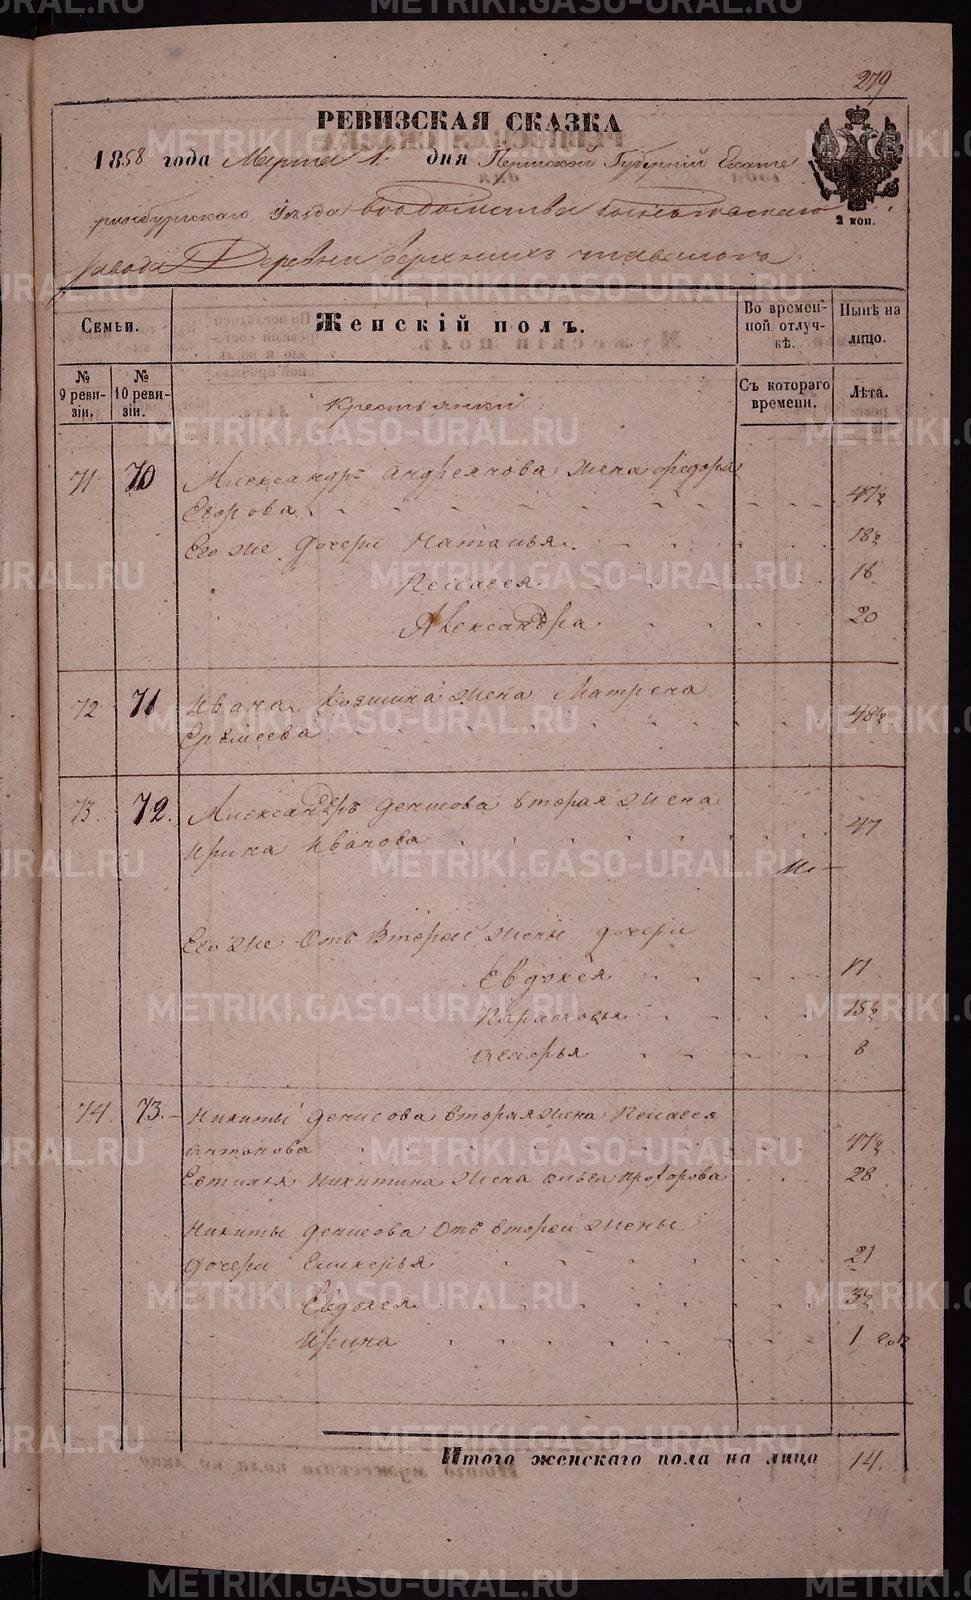 279
РЕВИЗСКАЯ СКАЗКА
1858 года Марта 1. дня Пермской Губерніи Екате
ринбургскаго уезда ведомства завода
Деревни верхнихъ
2 коп.
Семьи.
Женскій полъ.
Во времен-
ной отлуч-
кѣ.
Нынѣ на
лицо.
№
9 реви-
зіи.
№
10 реви-
зіи.
Съ котораго
времени.
Лѣта.
Крестьянки
71 70 Александръ Андреянова жена Федора
Егорова 47½
Его же дочери Наталья 18½
Пелагея 16
Александра 20
72 71 Ивана жена Матрена
Еремеева 48½
73. 72. Александръ денисова вторая жена
Ирина Иванова 47
Его же Отъ Второй жены дочери
Евдокея 17
Парасковья 15½
8
74. 73. Никиты денисова вторая жена Пелагея
антонова 47½
Никитина жена ольга прохорова 28
Никиты денисова Отъ второй жены
дочери 21
Евдокея 3½
Ирина 1 год
Итого женскаго пола на лицо 14.
METRIKI.GASO-URAL.RU